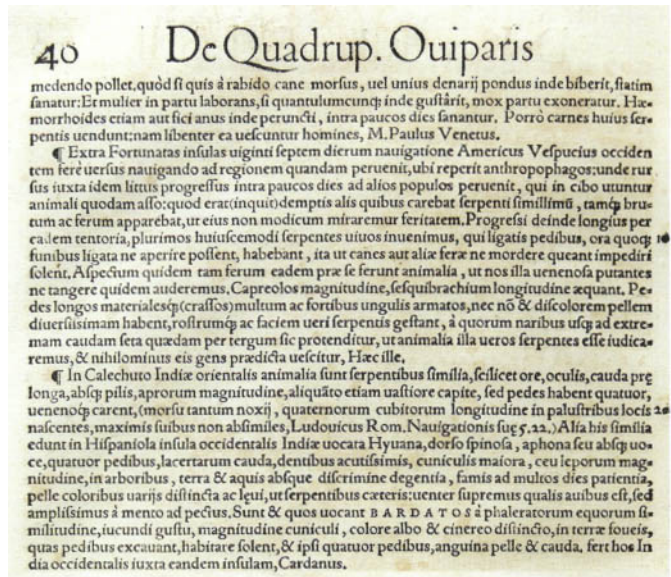 40 De Quadrup. Ouiparis
medendo pollet, quòd si quis à rabido cane morsus, uel unius denarij pondus inde biberit, statim
sanatur: Et mulier in partu laborans, si quantulumcunq; inde gustârit, mox partu exoneratur. Hæ=
morrhoides etiam aut fici anus inde peruncti, intra paucos dies sanantur. Porrò carnes huius ser=
pentis uendunt: nam libenter ea uescuntur homines, M. Paulus Venetus.
¶ Extra Fortunatas insulas uiginti septem dierum nauigatione Americus Vespucius occiden
tem ferè uersus nauigando ad regionem quandam peruenit, ubi reperit anthropophagos: unde rur
sus iuxta idem littus progressus intra paucos dies ad alios populos peruenit, qui in cibo utuntur
animali quodam asso: quod erat (inquit) demptis alis quibus carebat serpenti simillimū, tamq; bru=
tum ac ferum apparebat, ut eius non modicum miraremur feritatem. Progressi deinde longius per
eadem tentoria, plurimos huiuscemodi serpentes uiuos inuenimus, qui ligatis pedibus, ora quoq; 10
funibus ligata ne aperire possent, habebant, ita ut canes aut aliæ feræ ne mordere queant impediri
solent. Aspectum quidem tam ferum eadem præ se ferunt animalia, ut nos illa uenenosa putantes
ne tangere quidem auderemus. Capreolos magnitudine, sesquibrachium longitudine æquant. Pe=
des longos materialesq; (crassos) multum ac fortibus ungulis armatos, nec nō & discolorem pellem
diuersissimam habent, rostrumq; ac faciem ueri serpentis gestant, à quorum naribus usq; ad extre=
mam caudam seta quædam per tergum sic protenditur, ut animalia illa ueros serpentes esse iudica=
remus, & nihilominus eis gens prædicta uescitur, Hæc ille.
¶ In Calechuto Indiæ orientalis animalia sunt serpentibus similia, scilicet ore, oculis, cauda præ
longa, absq; pilis, aprorum magnitudine, aliquāto etiam uastiore capite, sed pedes habent quatuor,
uenenoq; carent, (morsu tantum noxij, quaternorum cubitorum longitudine in palustribus locis 20
nascentes, maximis suibus non absimiles, Ludouicus Rom. Nauigationis suę 5.22.) Alia his similia
edunt in Hispaniola insula occidentalis Indiæ uocata Hyuana, dorso spinosa, aphona seu absq; uo=
ce, quatuor pedibus, lacertarum cauda, dentibus acutissimis, cuniculis maiora, ceu leporum mag=
nitudine, in arboribus, terra & aquis absque discrimine degentia, famis ad multos dies patientia,
pelle coloribus uarijs distincta ac leui, ut serpentibus cæteris: uenter supremus qualis auibus est, sed
amplissimus à mento ad pectus. Sunt & quos uocant BARDATOS à phaleratorum equorum si=
militudine, iucundi gustu, magnitudine cuniculi, colore albo & cinereo distincto, in terræ foueis,
quas pedibus excauant, habitare solent, & ipsi quatuor pedibus, anguina pelle & cauda. fert hos In
dia occidentalis iuxta eandem insulam, Cardanus.